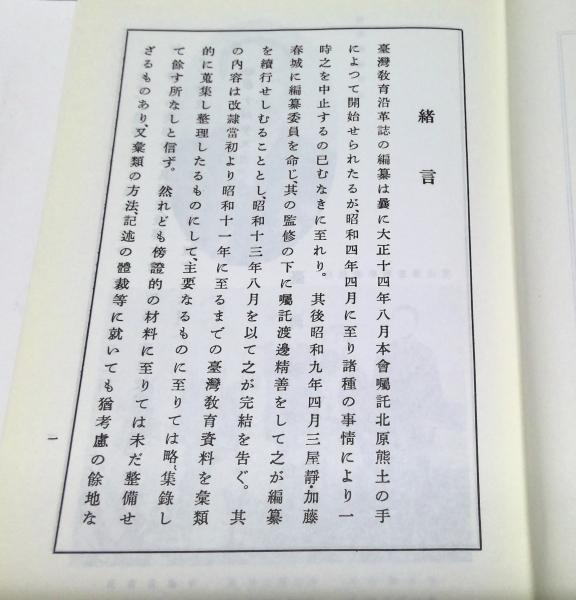 緒言
臺灣敎育沿革誌の編纂は曩に大正十四年八月本會囑託北原熊土の手
によつて開始せられたるが、昭和四年四月に至り諸種の事情により一
時之を中止するの已むなきに至れり。其後昭和九年四月三屋靜・加藤
春城に編纂委員を命じ、其の監修の下に囑託渡邊精善をして之が編纂
を續行せしむることとし、昭和十三年八月を以て之が完結を告ぐ。其
の內容は改隷當初より昭和十一年に至るまでの臺灣敎育資料を彙類
的に蒐集し整理したるものにして、主要なるものに至りては略〻集錄し
て餘す所なしと信ず。然れども傍證的の材料に至りては未だ整備せ
ざるものあり、又彙類の方法、記述の體裁等に就いても猶考慮の餘地な
一